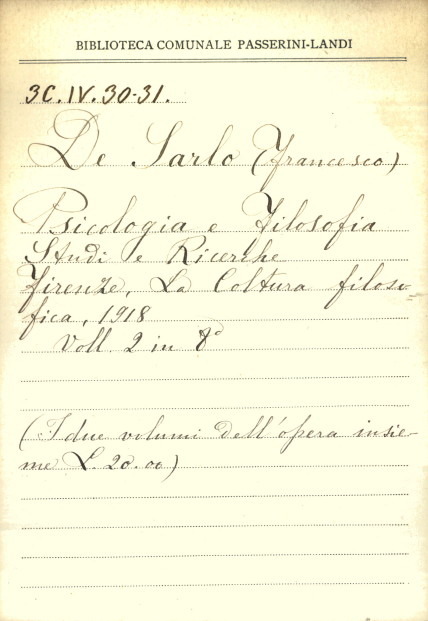 BIBLIOTECA COMUNALE PASSERINI-LANDI
3C.IV.30-31.
De Sarlo (Francesco)
Psicologia e Filosofia
Studi e Ricerche
Firenze, La Coltura filoso-
fica, 1918
Voll 2 in 8°
(I due volumi dell'opera insie-
me L. 20.00)